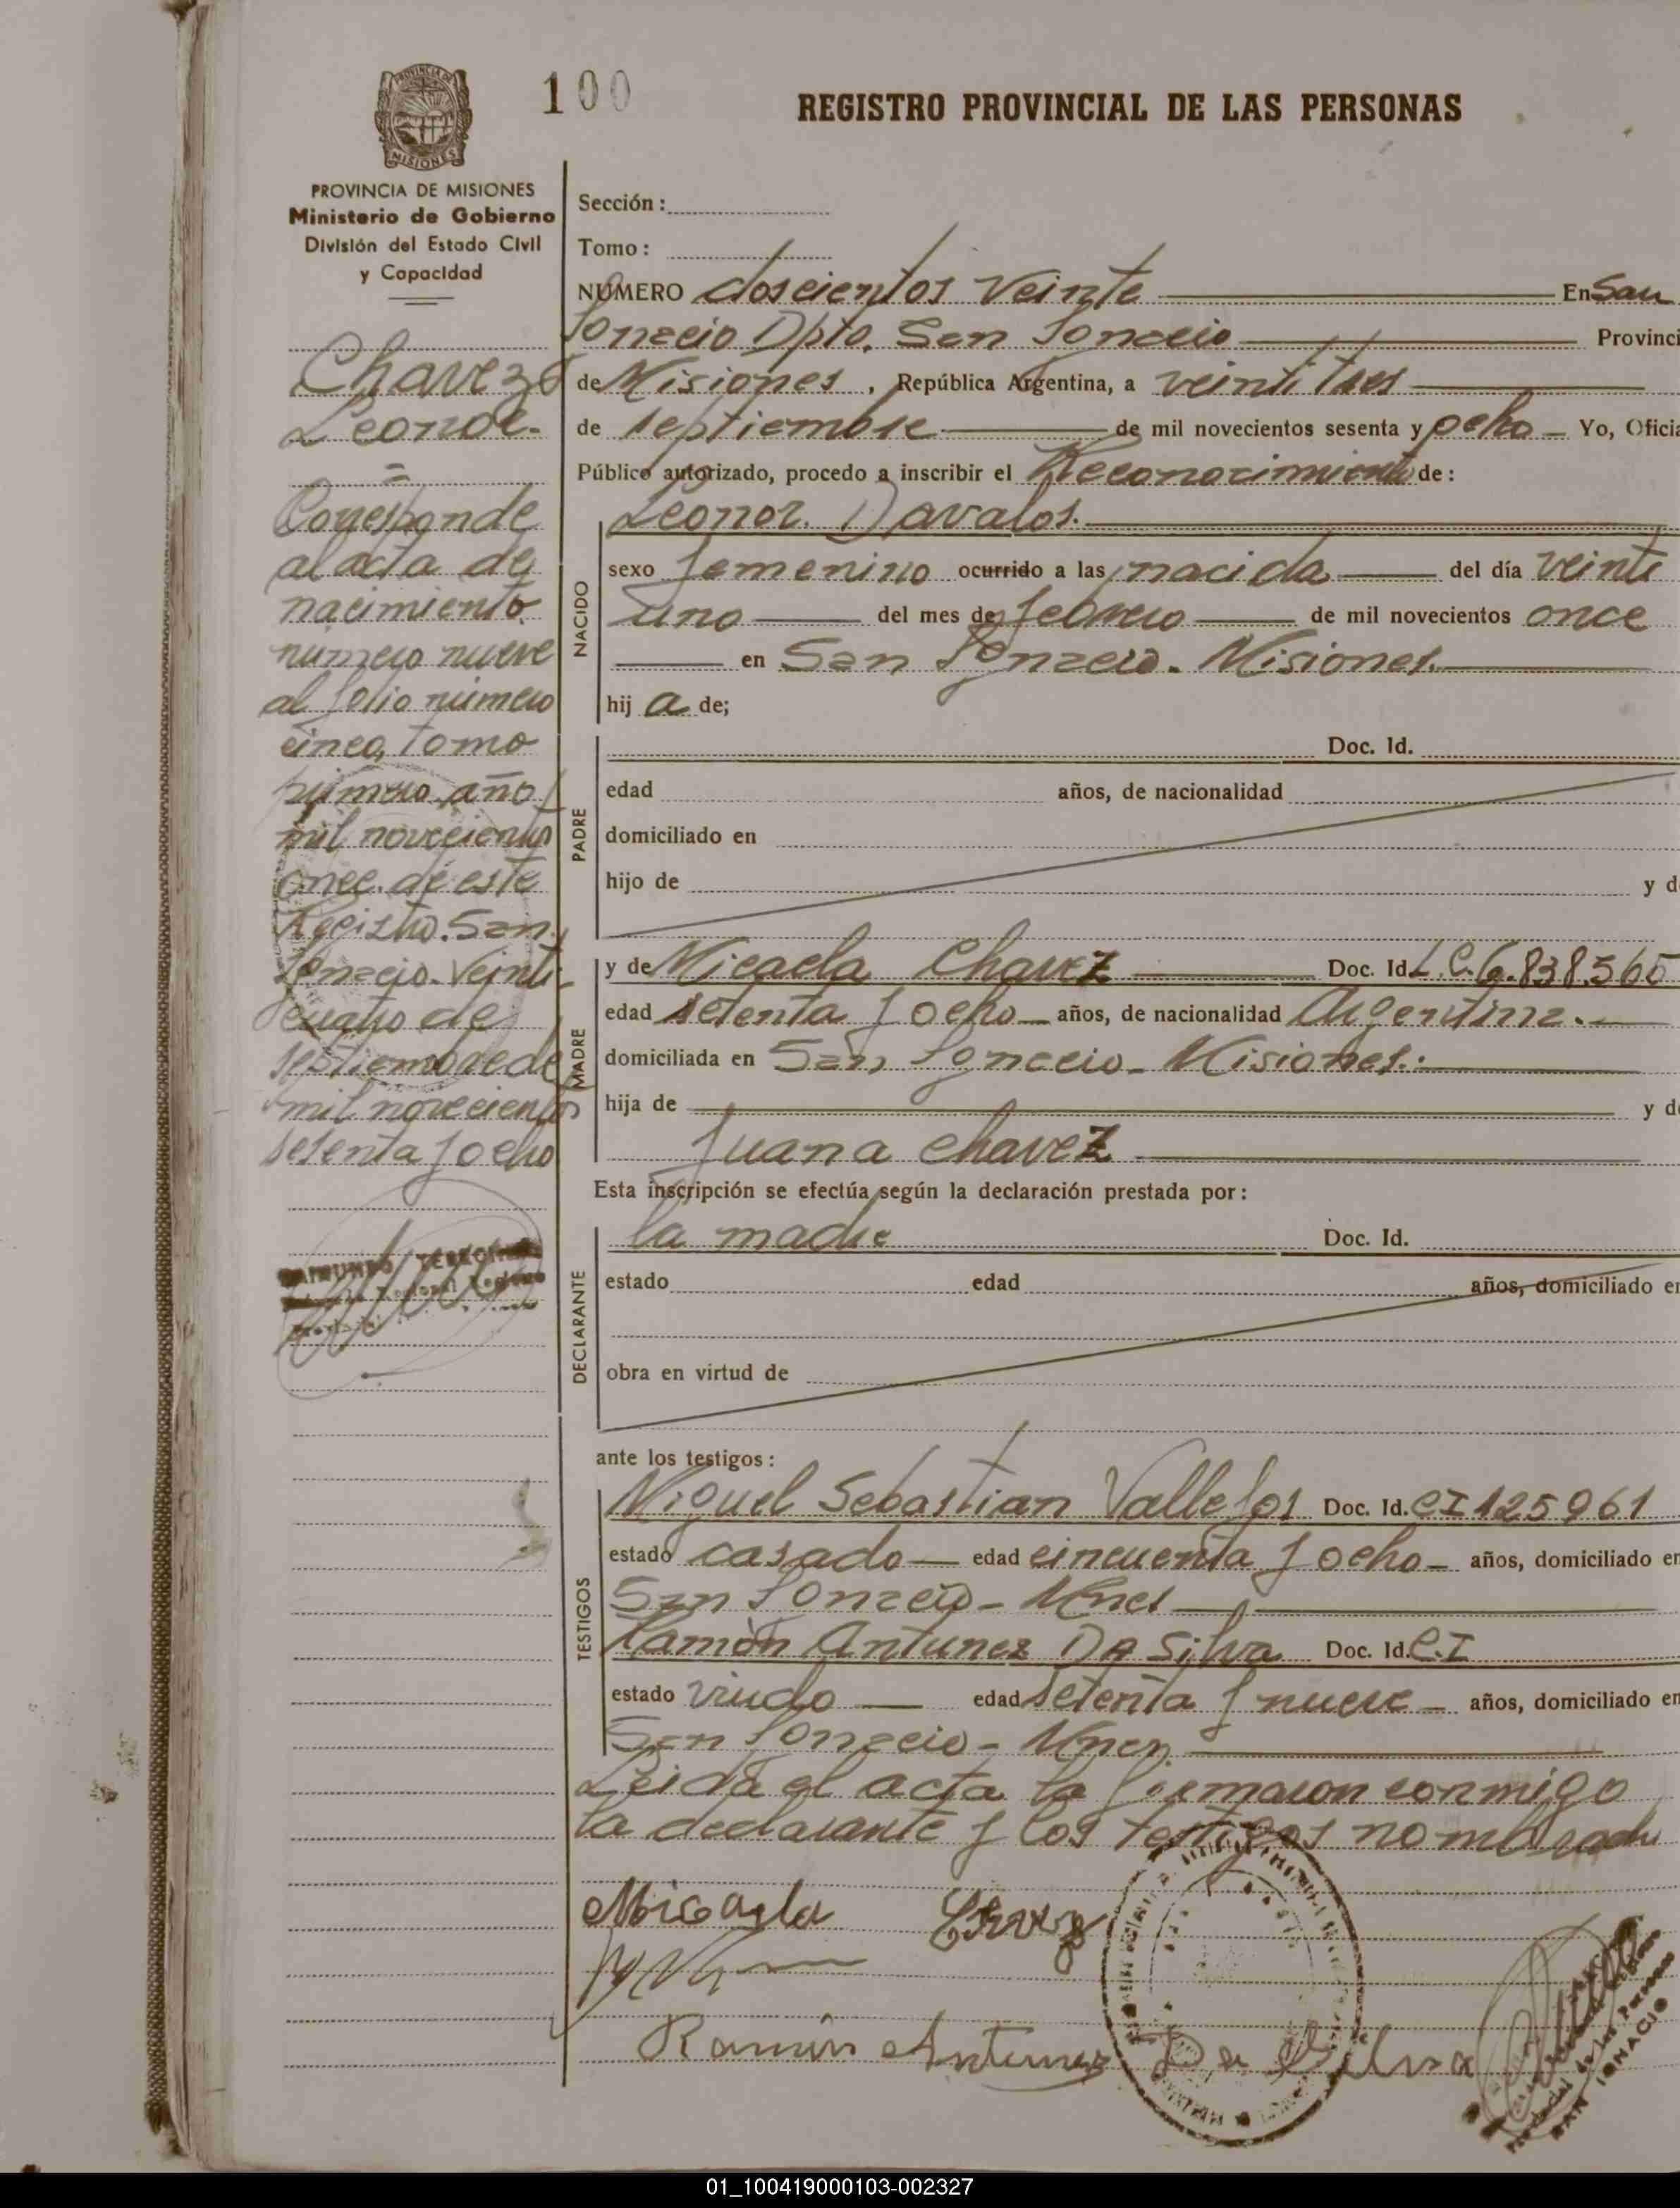 100
REGISTRO PROVINCIAL DE LAS PERSONAS
PROVINCIA DE MISIONES
Ministerio de Gobierno
División del Estado Civil
y Capacidad
Chavez
Leonor.
=
Corresponde
al acta de
nacimiento
número nueve
al folio número
cinco, tomo
primero año
mil novecientos
once. de este
Registro. San
Ignacio. Veinti
cuatro de
septiembre de
mil novecientos
sesenta y ocho
Sección:
Tomo:
NUMERO doscientos veinte En San
Ignacio Dpto. San Ignacio Provinci
de Misiones, República Argentina, a veintitres
de septiembre de mil novecientos sesenta y ocho Yo, Oficia
Público autorizado, procedo a inscribir el Reconocimiento de:
NACIDO
Leonor Davalos.
sexo femenino ocurrido a las nacida del día veinti
uno del mes de febrero de mil novecientos once
en San Ignacio. Misiones.
hij a de;
PADRE
Doc. Id.
edad años, de nacionalidad
domiciliado en
hijo de y d
MADRE
y de Micaela Chavez Doc. Id. L.C. 6.838.565
edad setenta y ocho años, de nacionalidad Argentina.
domiciliada en San Ignacio - Misiones.
hija de y d
Juana Chavez
Esta inscripción se efectúa según la declaración prestada por:
DECLARANTE
la madre Doc. Id.
estado edad años, domiciliado en
obra en virtud de
ante los testigos:
TESTIGOS
Miguel Sebastian Vallejos Doc. Id. CI 125961
estado casado edad cincuenta y ocho años, domiciliado en
San Ignacio - Mnes
Ramón Antunez Da Silva Doc. Id. C.I
estado viudo edad setenta y nueve años, domiciliado en
San Ignacio - Mnes.
Leida el acta la firmaron conmigo
la declarante y los testigos nombrados
Micaela Chavez
Ramón Antunez Da Silva
SAN IGNACIO
01_100419000103-002327